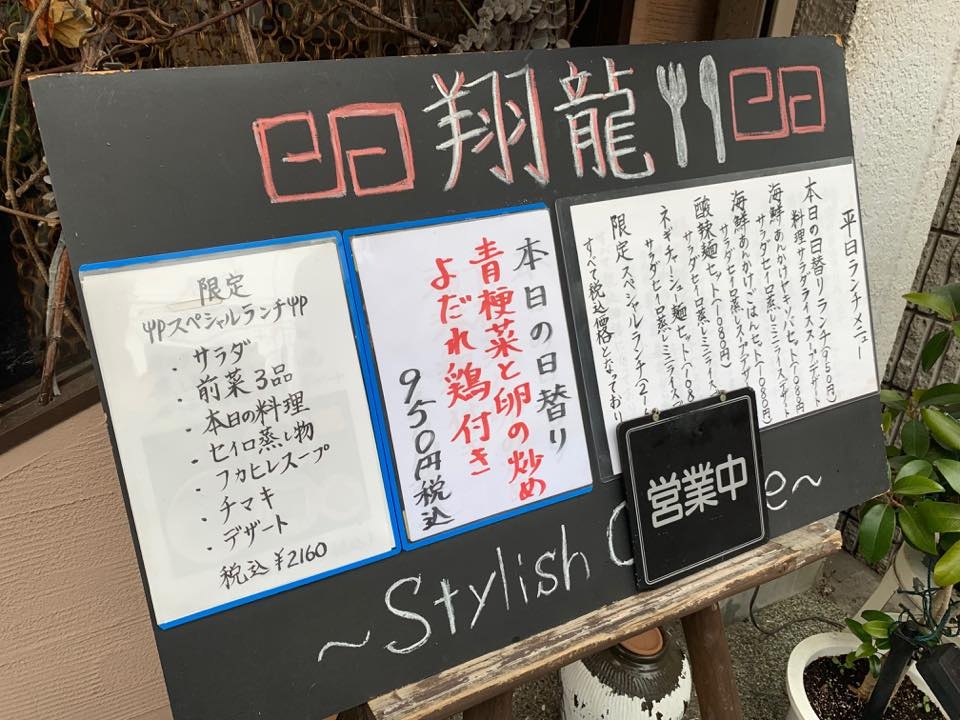 翔龍
限定
スペシャルランチ
・サラダ
・前菜3品
・本日の料理
・セイロ蒸し物
・フカヒレスープ
・チマキ
・デザート
税込¥2160
本日の日替り
青梗菜と卵の炒め
よだれ鶏付き
950円税込
平日ランチメニュー
本日の日替りランチ(950円)
料理サラダライススープデザート
海鮮あんかけヤキソバセット(1080円)
サラダセイロ蒸しミニライス
海鮮あんかけごはんセット(1080円)
サラダセイロ蒸しスープデザ
酸辣麺セット(1080円)
サラダセイロ蒸しミニライス
ネギチャーシュー麺セット(108
サラダセイロ蒸しミニライス
限定スペシャルランチ(2
すべて税込価格となっており
営業中
~Stylish C e~